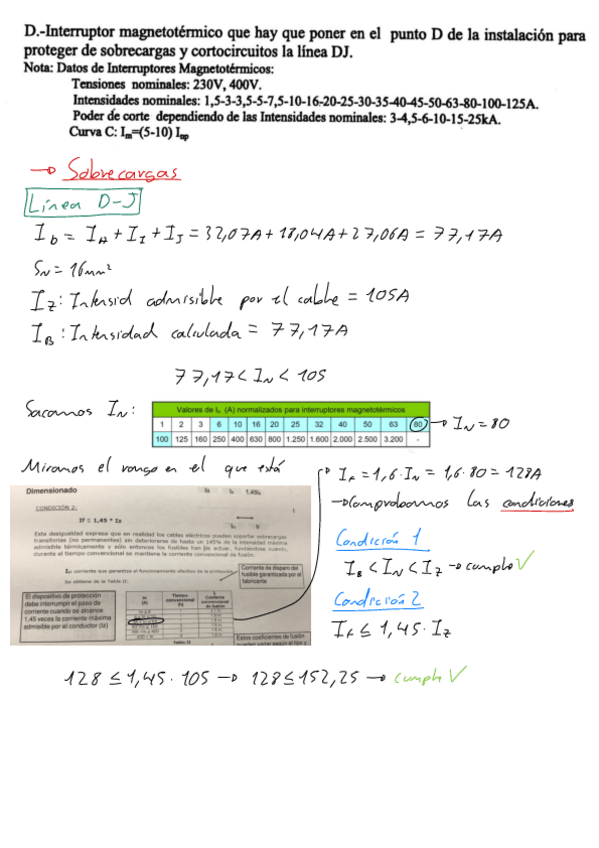 D.-Interruptor magnetotérmico que hay que poner en el punto D de la instalación para
proteger de sobrecargas y cortocircuitos la línea DJ.
Nota: Datos de Interruptores Magnetotérmicos:
Tensiones nominales: 230V, 400V.
Intensidades nominales: 1,5-3-3,5-5-7,5-10-16-20-25-30-35-40-45-50-63-80-100-125A.
Poder de corte dependiendo de las Intensidades nominales: 3-4,5-6-10-15-25kA.
Curva C: Im=(5-10) Inp
→ Sobrecargas
Línea D-J
Ib = IH + II + IJ = 32,07A + 18,04A + 27,06A = 77,17A
SN = 16mm²
IZ: Intensid admisible por el cable = 105A
IB: Intensidad calculada = 77,17A
77,17 < IN < 105
Sacamos IN:
Valores de In (A) normalizados para interruptores magnetotérmicos
1 2 3 6 10 16 20 25 32 40 50 63 80 → IN = 80
100 125 160 250 400 630 800 1.250 1.600 2.000 2.500 3.200 -
Miramos el rango en el que está
If = 1,6·IN = 1,6·80 = 128A
→ Comprobamos las condiciones
Condición 1
IB < IN < IZ → cumple √
Condición 2
If ≤ 1,45·IZ
Dimensionado
1,45Iz
CONDICIÓN 2:
If ≤ 1,45 * Iz
Esta desigualdad expresa que en realidad los cables eléctricos pueden soportar sobrecargas
transitorias (no permanentes) sin deteriorarse de hasta un 145% de la intensidad máxima
admisible térmicamente y sólo entonces los fusibles han de actuar, fundiéndose cuando,
durante el tiempo convencional se mantiene la corriente convencional de fusión.
If: corriente que garantiza el funcionamiento efectivo de la protección
Se obtiene de la Tabla II:
Corriente de disparo del
fusible garantizada por el
fabricante
El dispositivo de protección
debe interrumpir el paso de
corriente cuando se alcance
1,45 veces la corriente máxima
admisible por el conductor (Iz)
Tiempo
convencional
(h)
Corriente
convencional
de fusión
Tabla II
Estos coeficientes de fusión
128 ≤ 1,45·105 → 128 ≤ 152,25 → cumple √